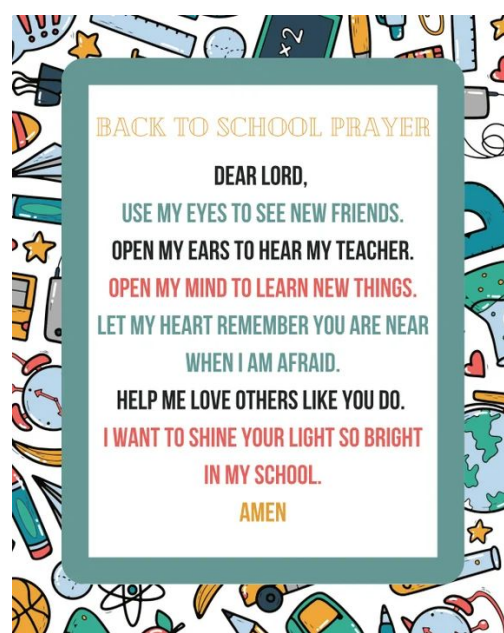 x2
BACK TO SCHOOL PRAYER
DEAR LORD,
USE MY EYES TO SEE NEW FRIENDS.
OPEN MY EARS TO HEAR MY TEACHER.
OPEN MY MIND TO LEARN NEW THINGS.
LET MY HEART REMEMBER YOU ARE NEAR
WHEN I AM AFRAID.
HELP ME LOVE OTHERS LIKE YOU DO.
I WANT TO SHINE YOUR LIGHT SO BRIGHT
IN MY SCHOOL.
AMEN